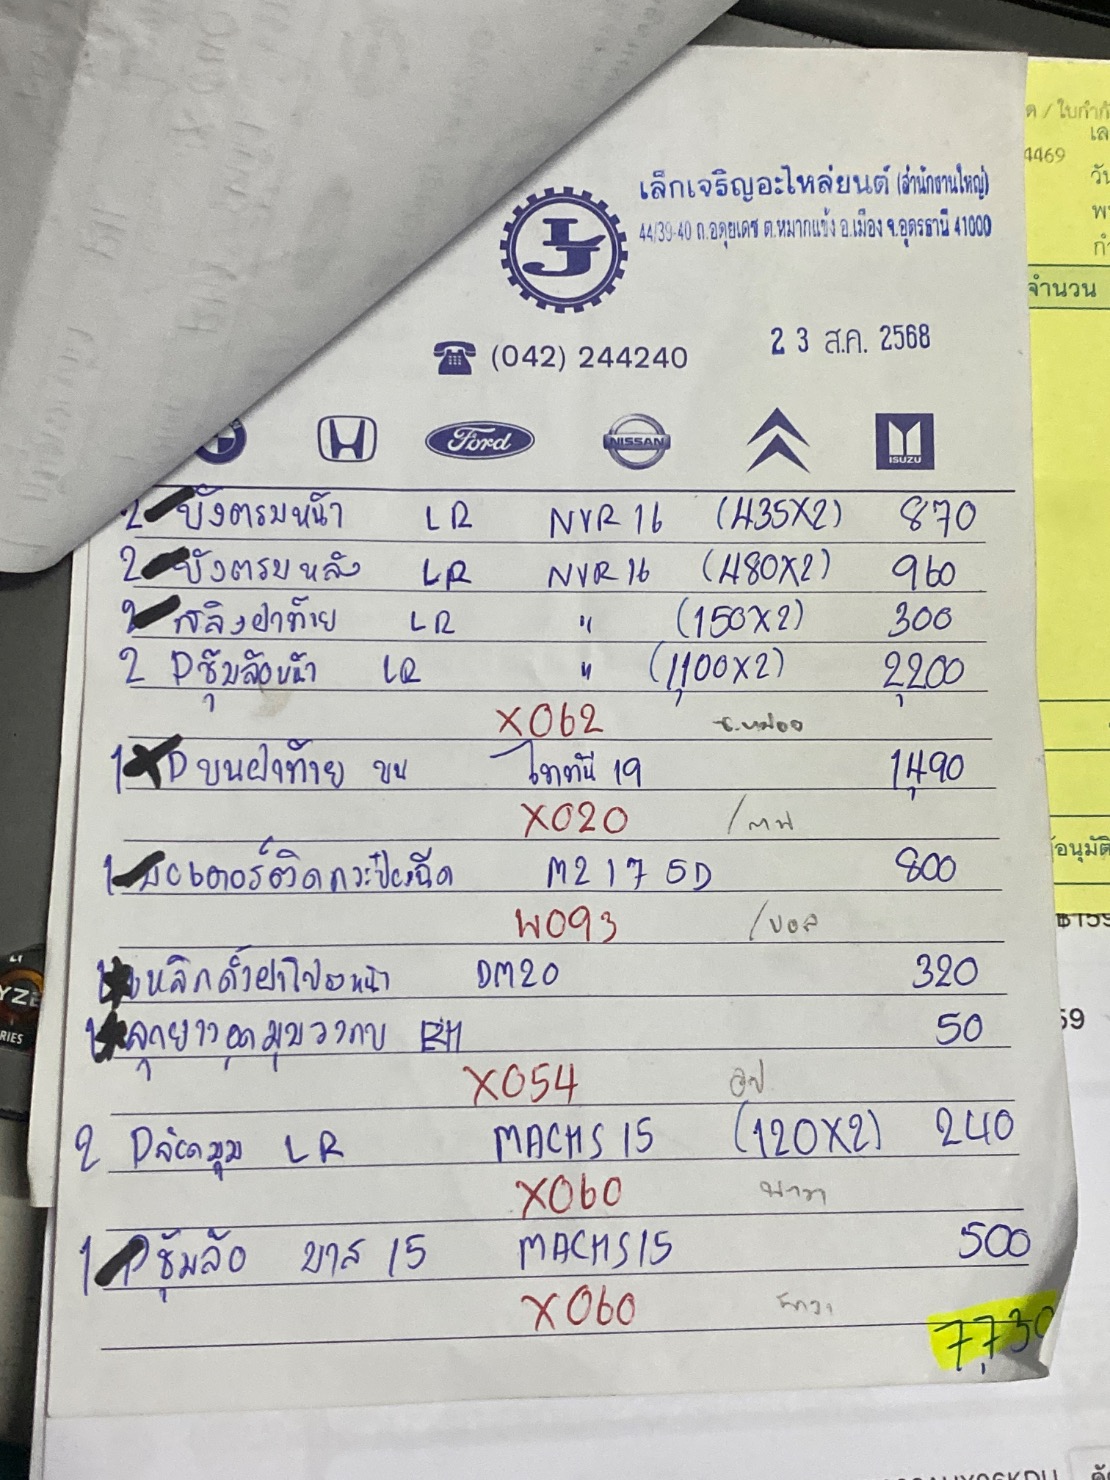 เล็กเจริญอะไหล่ยนต์ (สำนักงานใหญ่)
44/39-40 ถ.อดุยเดช ต.หมากแข้ง อ.เมือง จ.อุดรธานี 41000
J
(042) 244240
2 3 ส.ค. 2568
Ford
NISSAN
ISUZU
2 บังตรมหน้า LR NVR 16 (435X2) 870
2 บังตรมหลัง LR NVR 16 (480X2) 960
2 สลิงฝาท้าย LR " (150X2) 300
2 Pซุ้มล้อหน้า LR " (1,100X2) 2,200
X062
1 Pบนฝาท้าย ขน ไททัน 19 1,490
X020
1 มอเตอร์ติดกระป๋องฉีด M2175D 800
W093 /บอล
เหล็กค้ำฝาโปรงหน้า DM20 320
ลูกยางอุดมุมวงกบ 50
X054
2 P LR MACHS 15 (120X2) 240
X060
1 Pซุ้มล้อ บาส 15 MACHS15 500
X060
7,730
ด / ใบกำกั
เล
4469
วัน
พ
จำนวน
อนุมัติ
฿159
59
YZE
RIES